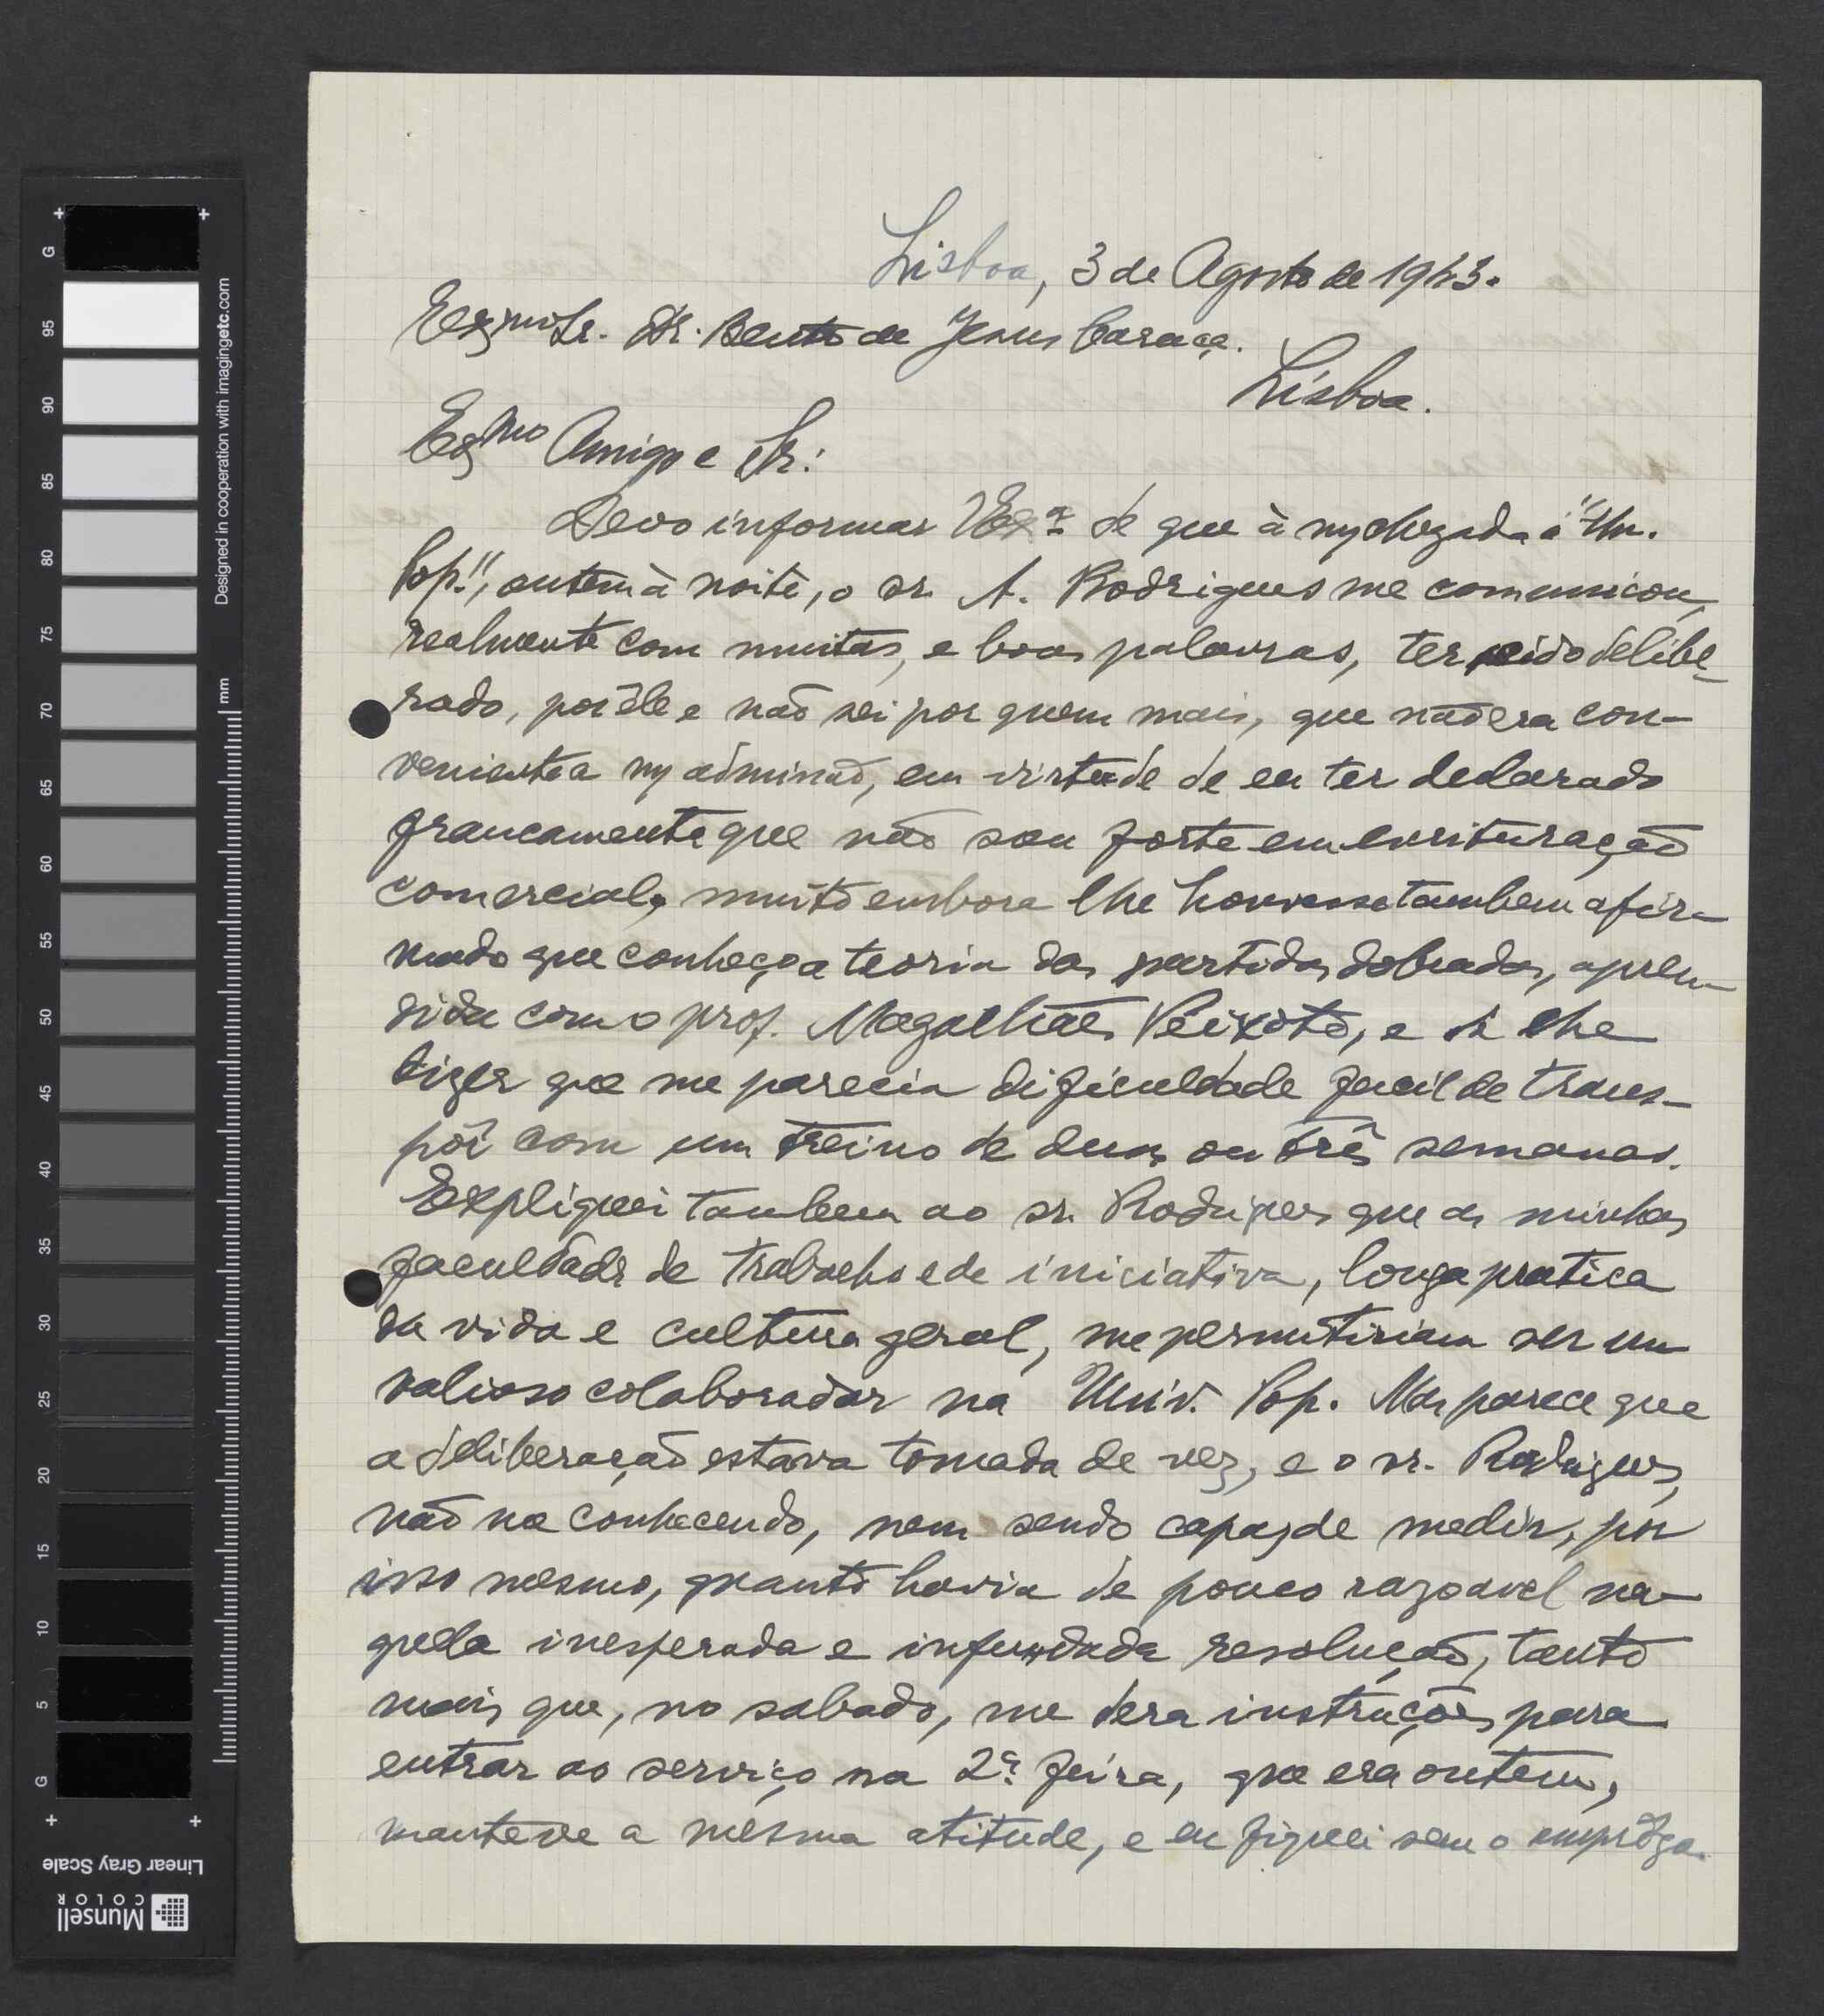 Lisboa, 3 de Agosto de 1943.
Exmo Sr. Dr. Bento de Jesus Caraça.
Lisboa.
Exmo Amigo e Sr:
Devo informar VExª de que à my chegada á "Un.
Pop.", ontem à noite, o sr. A. Rodrigues me comunicou,
realmente com muitas, e boas palavras, ter sido delibe-
rado, por êle e não sei por quem mais, que não era con-
veniente a my admissão, em virtude de eu ter declarado
francamente que não sou forte em escrituração
comercial, muito embora lhe houvesse tambem afir-
mado que conheço a teoria das partidas dobradas, apren-
dida com o prof. Magalhães Peixoto, e de lhe
dizer que me parecia dificuldade facil de trans-
pôr com um treino de duas ou três semanas.
Expliquei tambem ao sr. Rodrigues que as minhas
faculdade de trabalho e de iniciativa, longa pratica
da vida e cultura geral, me permitiriam ser um
valioso colaborador na Univ. Pop. Mas parece que
a deliberação estava tomada de vez, e o sr. Rodrigues,
não me conhecendo, nem sendo capaz de medir, por
isso mesmo, quanto havia de pouco razoavel na-
quela inesperada e infundada resolução, tanto
mais que, no sabado, me dera instruções para
entrar ao serviço na 2ª feira, que era ontem,
manteve a mesma atitude, e eu fiquei sem o emprêgo.
G 95 90 85 80 75 70 65 60 55 50 45 40 35 30 25 20 15 10 5 G
mm
Designed in cooperation with imagingetc.com
Linear Gray Scale
Munsell
COLOR